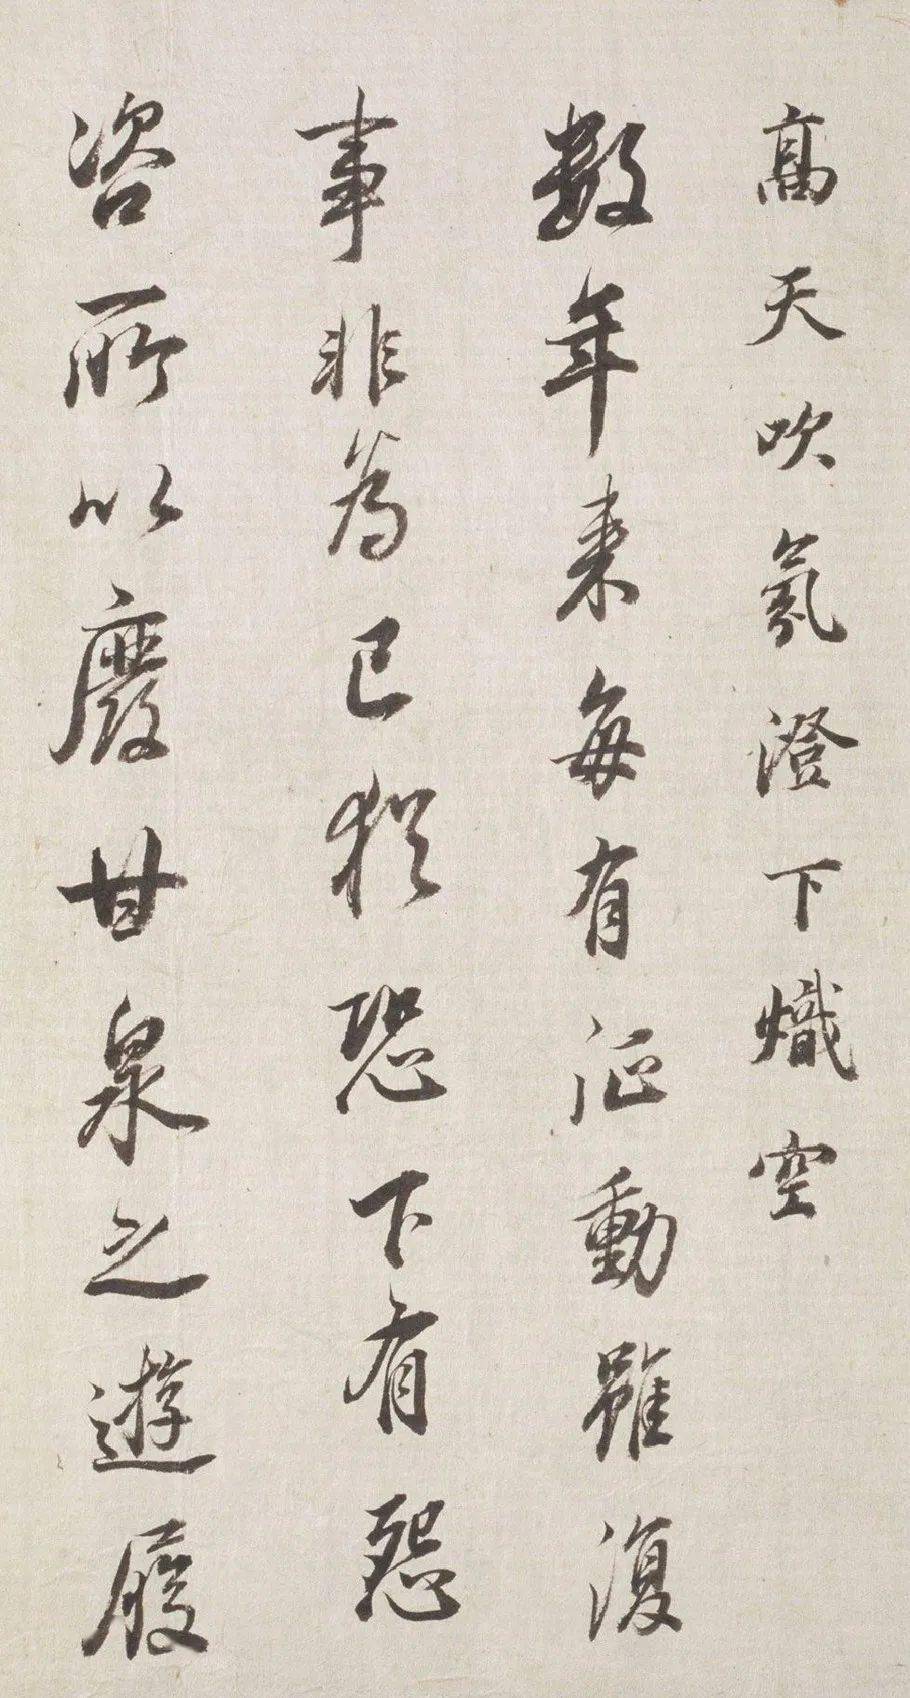 高天吹氛澄下熾空
數年來每有征動雖復
事非為己猶恐下有怨
咨所以廢甘泉之遊履